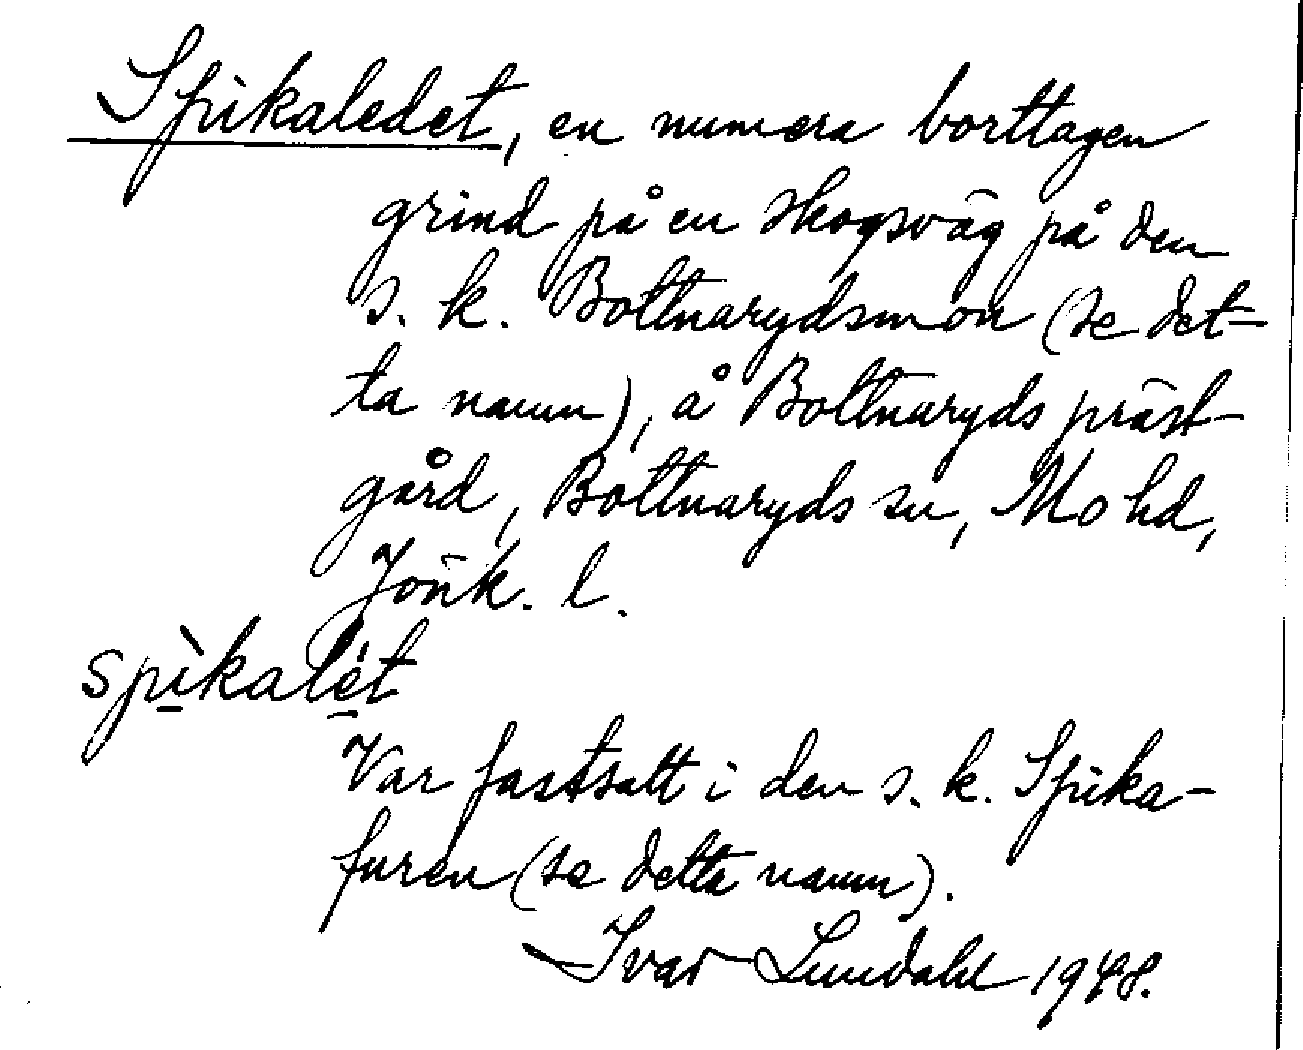 Spikaledet, en numera borttagen
grind på en skogsväg på den
s. k. Bottnarydsmon (se det-
ta namn), å Bottnaryds präst-
gård, Bottnaryds sn, Mo hd,
Jönk. l.
spìkalét
Var fastsatt i den s. k. Spika-
furen (se detta namn).
Ivar Lundahl 1948.